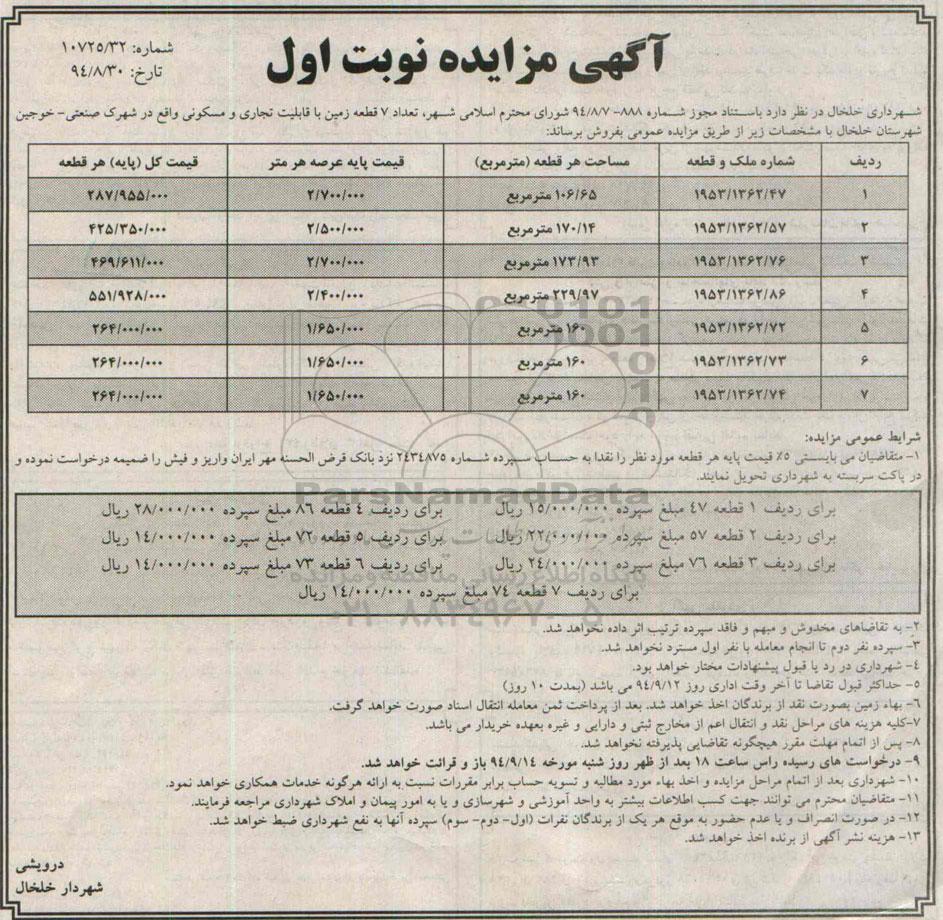 آگهی مزایده نوبت اول
شماره: ۱۰۷۲۵/۳۲
تاریخ: ۹۴/۸/۳۰
شهرداری خلخال در نظر دارد باستناد مجوز شماره ۸۸۸- ۹۴/۸/۷ شورای محترم اسلامی شهر، تعداد ۷ قطعه زمین با قابلیت تجاری و مسکونی واقع در شهرک صنعتی- خوجین
شهرستان خلخال با مشخصات زیر از طریق مزایده عمومی بفروش برساند:
ردیف شماره ملک و قطعه مساحت هر قطعه (مترمربع) قیمت پایه عرصه هر متر قیمت کل (پایه) هر قطعه
۱ ۱۹۵۳/۱۳۶۲/۴۷ ۱۰۶/۶۵ مترمربع ۲/۷۰۰/۰۰۰ ۲۸۷/۹۵۵/۰۰۰
۲ ۱۹۵۳/۱۳۶۲/۵۷ ۱۷۰/۱۴ مترمربع ۲/۵۰۰/۰۰۰ ۴۲۵/۳۵۰/۰۰۰
۳ ۱۹۵۳/۱۳۶۲/۷۶ ۱۷۳/۹۳ مترمربع ۲/۷۰۰/۰۰۰ ۴۶۹/۶۱۱/۰۰۰
۴ ۱۹۵۳/۱۳۶۲/۸۶ ۲۲۹/۹۷ مترمربع ۲/۴۰۰/۰۰۰ ۵۵۱/۹۲۸/۰۰۰
۵ ۱۹۵۳/۱۳۶۲/۷۲ ۱۶۰ مترمربع ۱/۶۵۰/۰۰۰ ۲۶۴/۰۰۰/۰۰۰
۶ ۱۹۵۳/۱۳۶۲/۷۳ ۱۶۰ مترمربع ۱/۶۵۰/۰۰۰ ۲۶۴/۰۰۰/۰۰۰
۷ ۱۹۵۳/۱۳۶۲/۷۴ ۱۶۰ مترمربع ۱/۶۵۰/۰۰۰ ۲۶۴/۰۰۰/۰۰۰
شرایط عمومی مزایده:
۱- متقاضیان می بایستی ۵٪ قیمت پایه هر قطعه مورد نظر را نقدا به حساب سپرده شماره ۲۴۳۴۸۷۵ نزد بانک قرض الحسنه مهر ایران واریز و فیش را ضمیمه درخواست نموده و
در پاکت سربسته به شهرداری تحویل نمایند.
ParsNamadData
برای ردیف ۱ قطعه ۴۷ مبلغ سپرده ۱۵/۰۰۰/۰۰۰ ریال برای ردیف ٤ قطعه ۸۶ مبلغ سپرده ۲۸/۰۰۰/۰۰۰ ریال
برای ردیف ۲ قطعه ۵۷ مبلغ سپرده ۲۲/۰۰۰/۰۰۰ ریال برای ردیف ۵ قطعه ۷۲ مبلغ سپرده ۱۴/۰۰۰/۰۰۰ ریال
برای ردیف ۳ قطعه ۷۶ مبلغ سپرده ۲۴/۰۰۰/۰۰۰ ریال برای ردیف ۶ قطعه ۷۳ مبلغ سپرده ۱۴/۰۰۰/۰۰۰ ریال
پایگاه اطلاع رسانی مناقصه و مزایده
برای ردیف ۷ قطعه ۷۴ مبلغ سپرده ۱۴/۰۰۰/۰۰۰ ریال
۰۲۱-۸۸۳۴۹۶۷۰-۵
۲- به تقاضاهای مخدوش و مبهم و فاقد سپرده ترتیب اثر داده نخواهد شد.
۳- سپرده نفر دوم تا انجام معامله با نفر اول مسترد نخواهد شد.
۴- شهرداری در رد یا قبول پیشنهادات مختار خواهد بود.
۵- حداکثر قبول تقاضا تا آخر وقت اداری روز ۹۴/۹/۱۲ می باشد (بمدت ۱۰ روز)
۶- بهاء زمین بصورت نقد از برندگان اخذ خواهد شد. بعد از پرداخت ثمن معامله انتقال اسناد صورت خواهد گرفت.
۷-کلیه هزینه های مراحل نقد و انتقال اعم از مخارج ثبتی و دارایی و غیره بعهده خریدار می باشد.
۸- پس از اتمام مهلت مقرر هیچگونه تقاضایی پذیرفته نخواهد شد.
۹- درخواست های رسیده راس ساعت ۱۸ بعد از ظهر روز شنبه مورخه ۹۴/۹/۱۴ باز و قرائت خواهد شد.
۱۰- شهرداری بعد از اتمام مراحل مزایده و اخذ بهاء مورد مطالبه و تسویه حساب برابر مقررات نسبت به ارائه هرگونه خدمات همکاری خواهد نمود.
۱۱- متقاضیان محترم می توانند جهت کسب اطلاعات بیشتر به واحد آموزشی و شهرسازی و یا به امور پیمان و املاک شهرداری مراجعه فرمایند.
۱۲- در صورت انصراف و یا عدم حضور به موقع هر یک از برندگان نفرات (اول- دوم- سوم) سپرده آنها به نفع شهرداری ضبط خواهد شد.
۱۳- هزینه نشر آگهی از برنده اخذ خواهد شد.
درویشی
شهردار خلخال